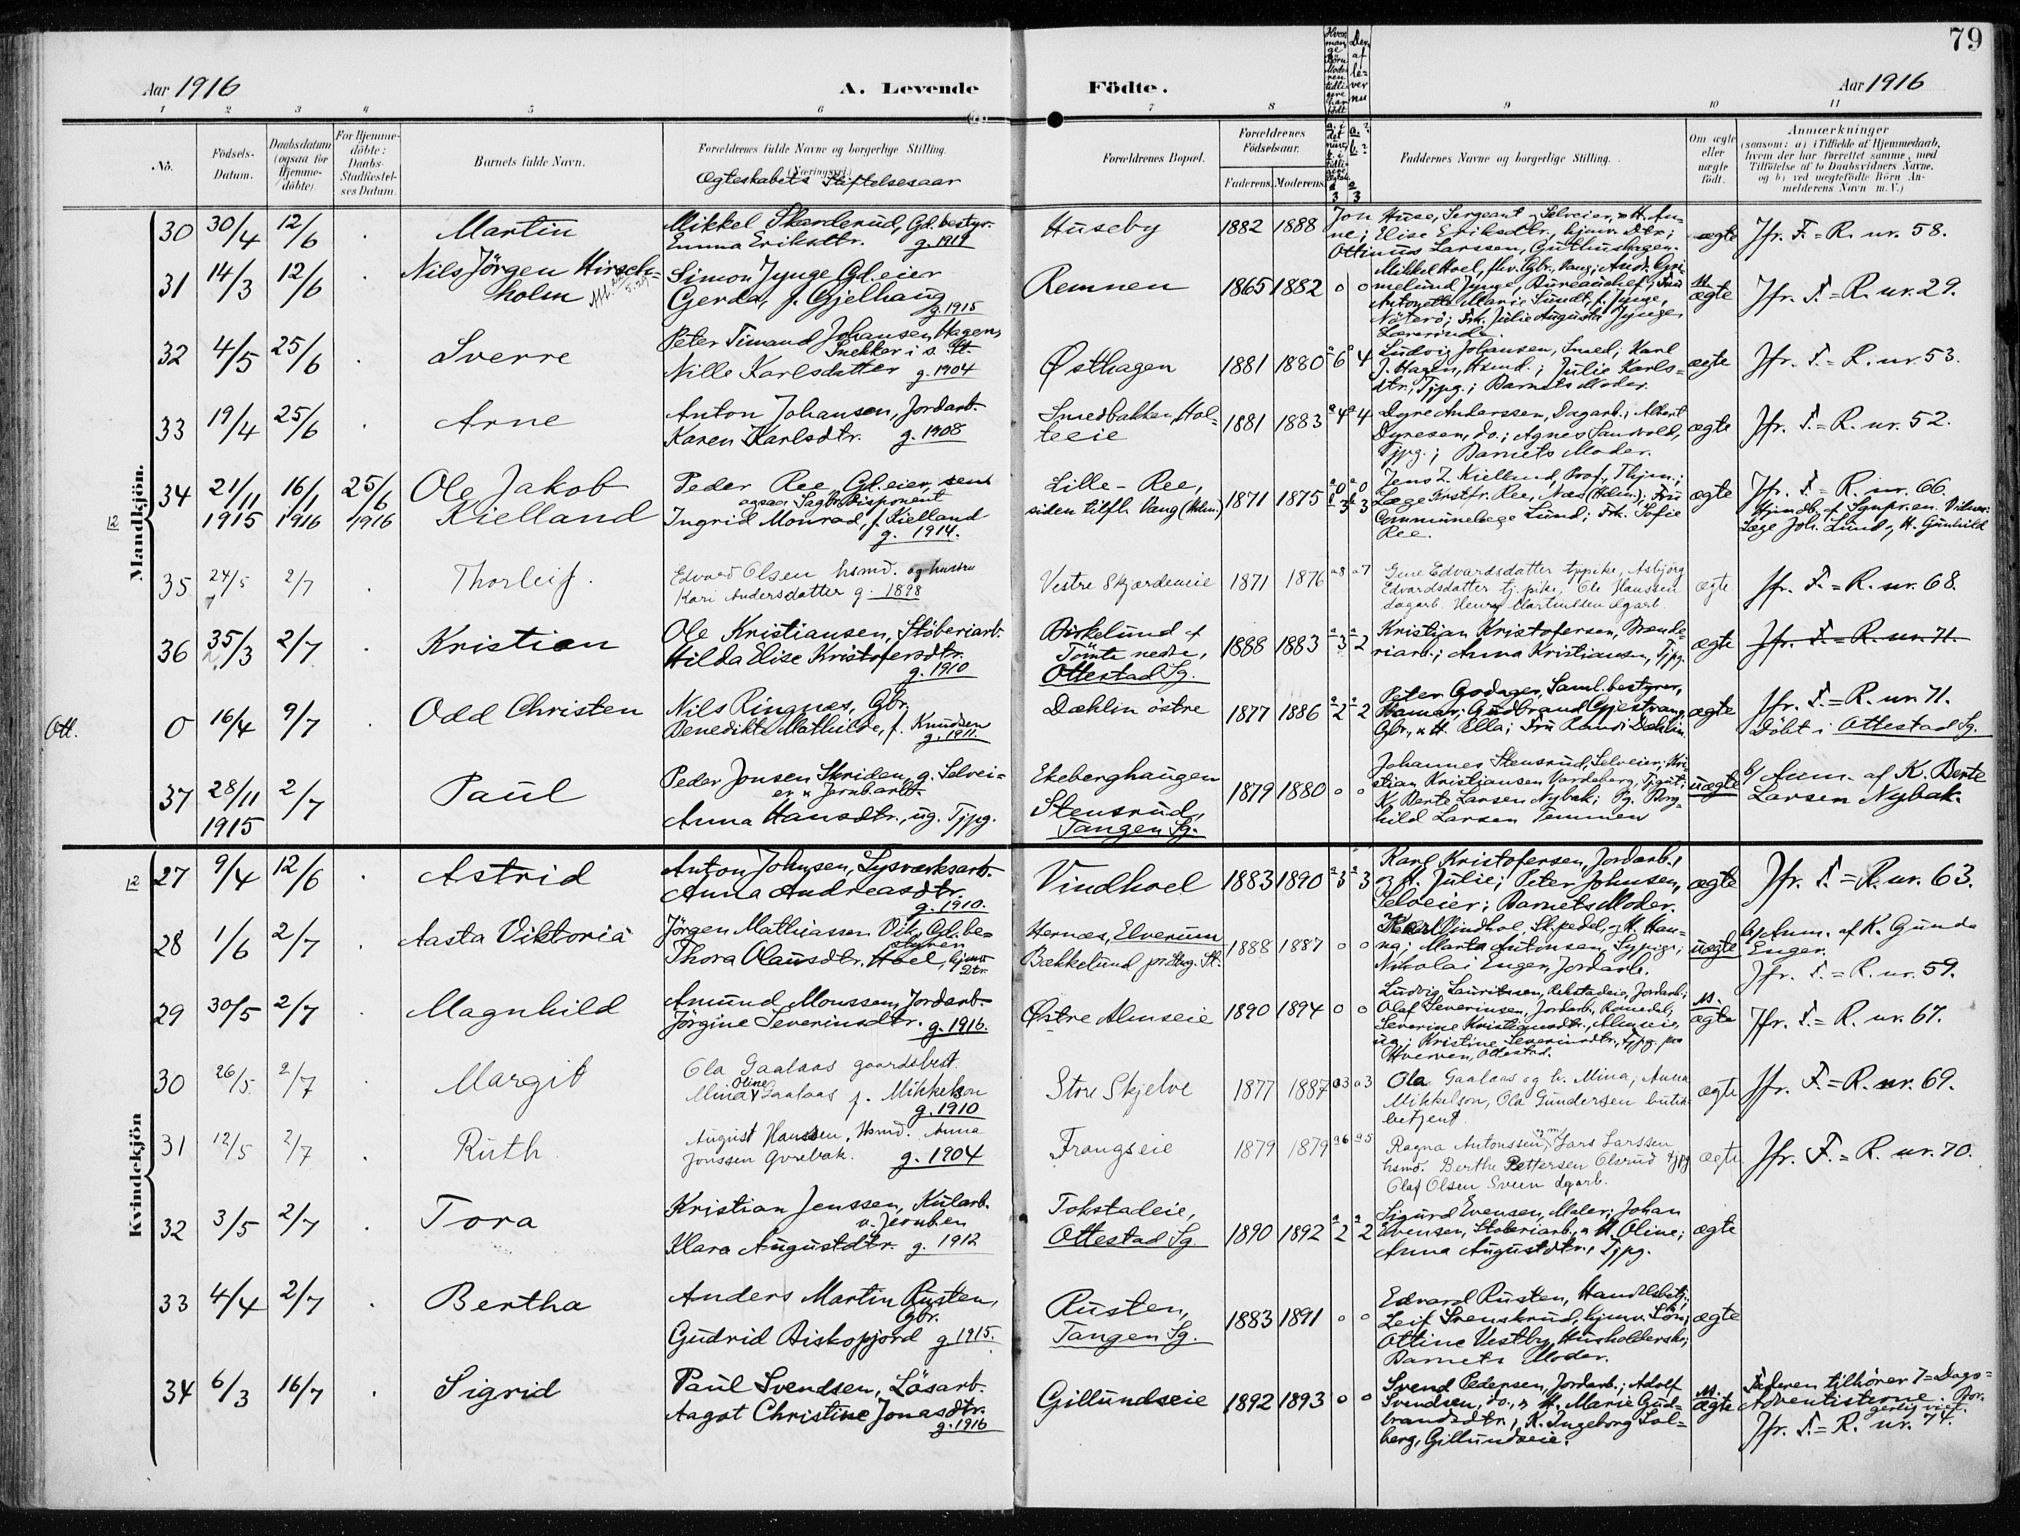 79
Aar 1916 A. Levende Födte. Aar 1916
1 2 3 4 5 6 7 8 9 10 11
No. Födsels-Datum. Daabsdatum (ogsaa for Hjemmedöbte). For Hjemmedöbte: Daabs-Stadfæstelses Datum. Barnets fulde Navn. Forældrenes fulde Navne og borgerlige Stilling. (Næringsvei) Ægteskabets Stiftelsesaar
Forældrenes Bopæl. Forældrenes Födselsaar. Faderens. Moderens. Faddernes Navne og borgerlige Stilling. Om ægte eller uægte födt. Anmærkninger
(saasom: a) i Tilfælde af Hjemmedaab, hvem der har forrettet samme, med Tilföielse af to Daabsvidners Navne, og b) ved uægtefödte Börn Anmelderens Navn m. V.)
Mandkjön.
30 30/4 12/6 Martin
Mikkel Skarderud, Gd. bestyr.
Emma Eriksdtr. g. 1919
Huseby 1882 1888
Jon Huse, Sergeant, Selveier, H. Anne; Elise Eriksdtr., hjemv. Dtr.;
Ottinus Larssen, Guthushagen.
ægte Jfr. F.=R. nr. 58.
31 14/3 12/6 Nils Jörgen Hirschholm
Simon Jynge, Gd. eier
Gerda, f. Gjelhaug
g. 1915
Remnen 1865 1882 0 0
Mikkel Hoel, fhv. Gbr., Vang;
Jynge, Bureauchef; Frue
Antonette Marie Sundt, f. Jynge,
Nöterö; Frk. Julie Augusta Jynge,
Lærerinde
M. ægte Jfr. F.=R. nr. 29.
32 4/5 25/6 Sverre
Peter Timand Johansen Hagen,
Snekker i s. St.
Nille Karlsdatter g. 1904
Østhagen 1881 1880 6 4
Ludvig Johansen, Smed; Karl
J. Hagen, Hsmd.; Julie Karlsdtr., Tjpg.; Barnets Moder.
ægte Jfr. F.=R. nr. 53.
33 19/4 25/6 Arne
Anton Johansen, Jordarb.
Karen Karlsdtr. g. 1908
Smedbakken, Holteeie 1881 1883 4 4
Dyre Anderssen, Dagarb.; Albert
Dyresen, do.; Agnes Sandvold,
Tjpg.; Barnets Moder.
ægte Jfr. F.=R. nr. 52.
34 21/11 1915 16/1 1916 25/6 1916 Ole Jakob Kielland
Peder Ree, Gd. eier, sen.
ogsaa Sagbr. Disponent
Ingrid Monrad, f. Kielland
g. 1914.
Lille-Ree,
siden tilfl. Vang (Hdm.) 1871 1875
Jens Z. Kielland, Prof., Thjem;
Læge Ree, Næs (Hdm.); Fru
Communelæge Lund; Frk. Sofie
Ree.
ægte Jfr. F.=R. nr. 66.
Hjmdb. af Sgnpr. en. Vidner:
Læge Joh. Lund, H. Gunhild
35 24/5 2/7 Thorleif.
Edvard Olsen hsmd. og hustru
Kari Andersdatter g. 1898
Vestre Skjærdeneie 1871 1876 8 7
Gine Edvardsdatter tjpike, Asbjörg
Edvardsdatter tj. pike, Ole Hanssen
dagarb. Henry Martinssen dgarb.
ægte Jfr. F.=R. nr. 68.
36 35/3 2/7 Kristian
Ole Kristiansen, Stöberiarb.
Hilda Elise Kristofersdtr.
g. 1910
Birkelund af
Tömte nedre,
Ottestad Sg. 1888 1883 3 2
Kristian Kristofersen, Brænderiarb.; Anna Kristiansen, Tjpg.
ægte Jfr. F.=R. nr. 71.
Ott. 0 16/4 9/7 Odd Christen
Nils Ringnes, Gbr.
Benedikte Mathilde, f. Knudsen
g. 1911.
Dæhlin östre 1877 1886 2 2
Peter Godager, Saml. bestyrer,
Hamar; Gudbrand Gjestvang,
Gbr., H. Ella; Fru Randi Dæhlin
ægte Jfr. F.=R. nr. 71.
Döbt i Ottestad Sg.
37 28/11 1915 2/7 Paul
Peder Jonsen Skriden, g. Selveier & Jernbarb.
Anna Hansdtr., ug. Tjpg.
Ekeberghaugen
Stensrud,
Tangen Sg. 1879 1880 0 0
Johannes Stensrud, Selveier; Kristian Kristiansen Vardeberg, Tjgut;
K. Berte Larsen Nybak; Pg. Borghild Larsen Temmen
uægte b/ Anm. af K. Berte
Larsen Nybak.
Kvindekjön
27 9/4 12/6 Astrid
Anton Johnsen, Lysværksarb.
Anna Andreasdtr.
g. 1910.
Vindhoel 1883 1890 3 3
Karl Kristofersen, Jordarb.,
og H. Julie; Peter Johnsen,
Selveier; Barnets Moder.
ægte Jfr. F.=R. nr. 63.
28 1/6 2/7 Aasta Viktoria
Jörgen Mathiassen Vik, Gd. bestyrer
Thora Olausdtr. Hoel, hjemv. Dtr.
Hernæs, Elverum
Bækkelund pr. Stg. St. 1888 1887 0 0
Karl Vindhol, Sk. pedel, og H. Hanna; Marta Antonsen, Sypige;
Nikolai Enger, Jordarb.
uægte b/ Anm. af K. Gunda
Enger.
Jfr. F.=R. nr. 59.
29 30/5 2/7 Magnhild
Amund Monssen, Jordarb.
Jörgine Severinsdtr. g. 1916.
Østre Almseie 1890 1894 0 0
Ludvig Lauritssen, Rekstadeie, Jordarb.;
Olaf Severinsen, Jordarb., Romedal;
Severine Kristiansdtr., Almseie,
ug.; Kristine Severinsdtr., tjpg. paa
Hverven, Ottestad.
M. ægte Jfr. F.=R. nr. 67.
30 26/5 2/7 Margit
Ola Gaalaas gaardsbest.
Mina Oline Gaalaas f. Mikkelson
g. 1910
Store Skjelve 1877 1887 3 3
Ola Gaalaas og h. Mina; Anna
Mikkelson, Ola Gundersen butikbetjent
ægte Jfr. F.=R. nr. 69.
31 12/5 2/7 Ruth.
August Hanssen, Hsmd. Anna
Jonssen Qvæbak. g. 1904
Frangseie 1879 1879 6 5
Ragna Antonssen, Lars Larssen
hsmd. Berthe Pettersen Olsrud tjpg
Olaf Olsen Sveen dgarb.
ægte Jfr. F.=R. nr. 70.
32 3/5 2/7 Tora
Kristian Jenssen, Kularb.
v. Jernben
Klara Augustdtr. g. 1912
Tokstadeie,
Ottestad Sg. 1890 1892 2 2
Sigurd Evensen, Maler; Johan
Evensen, Stöberiarb., H. Oline;
Anna Augustdtr., Tjpg.
ægte
33 4/4 2/7 Bertha
Anders Martin Rusten,
Gbr.
Gudrid Biskopjord g. 1915.
Rusten,
Tangen Sg. 1883 1891 0 0
Edvard Rusten, Handelsbetj.;
Leif Svenskrud, hjemv. Sön;
Ottine Vestby, Husholdersk.;
Barnets Moder.
ægte
34 6/3 16/7 Sigrid
Paul Svendsen, Lösarb.
Aagot Christine Jonasdtr.
g. 1916
Gillundseie 1892 1893 0 0
Svend Pedersen, Jordarb.; Adolf
Svendsen, do., H. Marie Gudbrandsdtr.; K. Ingeborg Solberg, Gillundseie.
M. ægte Faderen tilhörer 7=Dags=
Adventisterne. Borgerlig viet.
Jfr. F.=R. nr. 74.